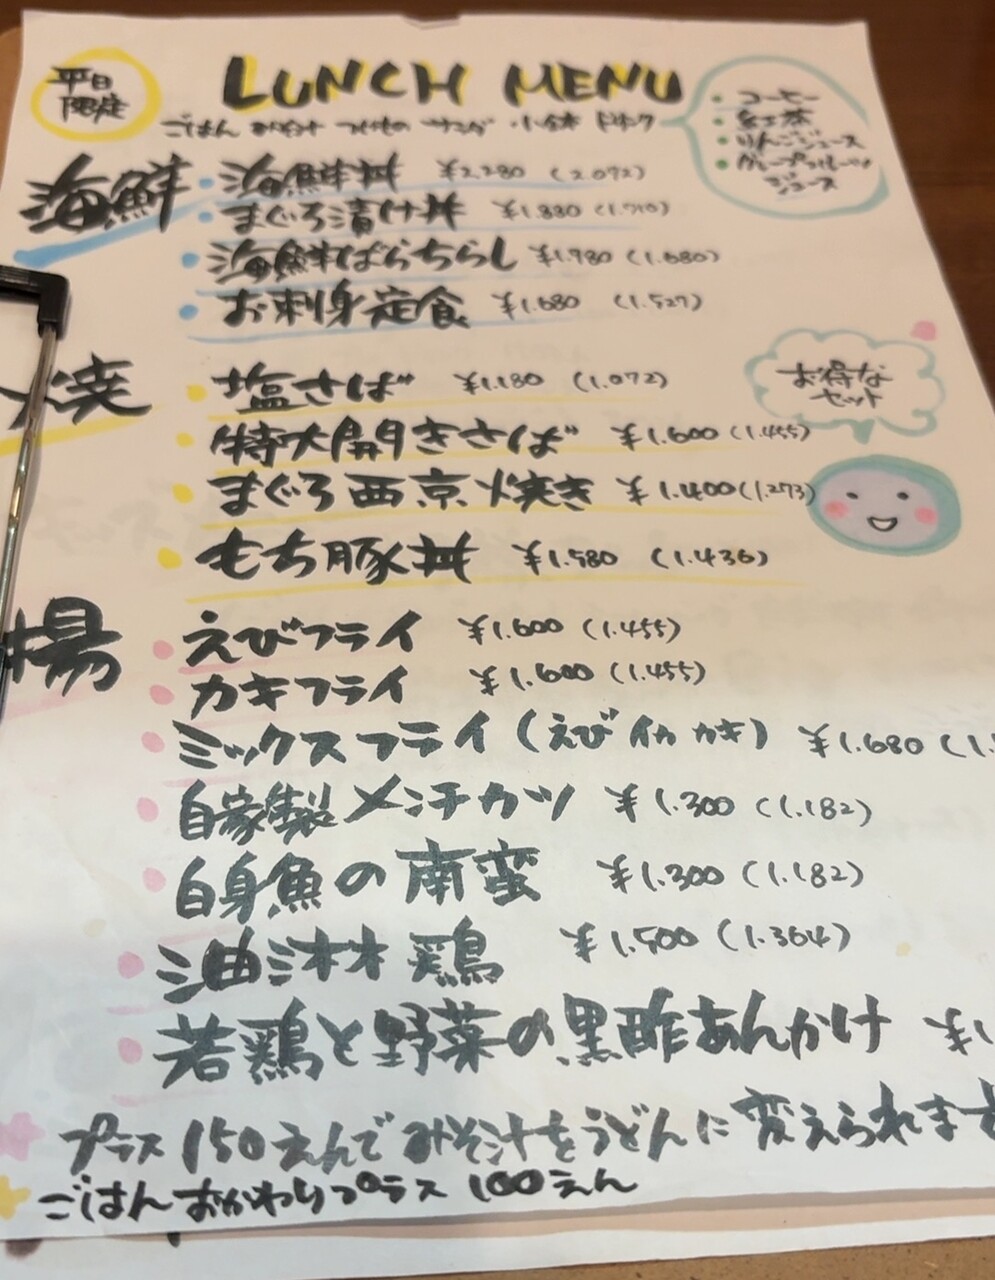 平日
限定
LUNCH MENU
ごはん みそ汁 つけもの サラダ 小鉢 ドリンク
・コーヒー
・紅茶
・りんごジュース
・グレープフルーツ
ジュース
海鮮
・海鮮丼 ¥2.280 (2.072)
・まぐろ漬け丼 ¥1.880 (1.710)
・海鮮ばらちらし ¥1.780 (1.680)
・お刺身定食 ¥1.680 (1.527)
お得な
セット
焼
・塩さば ¥1.180 (1.072)
・特大開きさば ¥1.600 (1.455)
・まぐろ西京焼き ¥1.400 (1.273)
・もち豚丼 ¥1.580 (1.436)
揚
・えびフライ ¥1.600 (1.455)
・カキフライ ¥1.600 (1.455)
・ミックスフライ (えび イカ カキ) ¥1.680 (1.
・自家製メンチカツ ¥1.300 (1.182)
・白身魚の南蛮 ¥1.300 (1.182)
・油淋鶏 ¥1.500 (1.364)
・若鶏と野菜の黒酢あんかけ ¥1
プラス150えんでみそ汁をうどんに変えられます
ごはんおかわりプラス 100えん